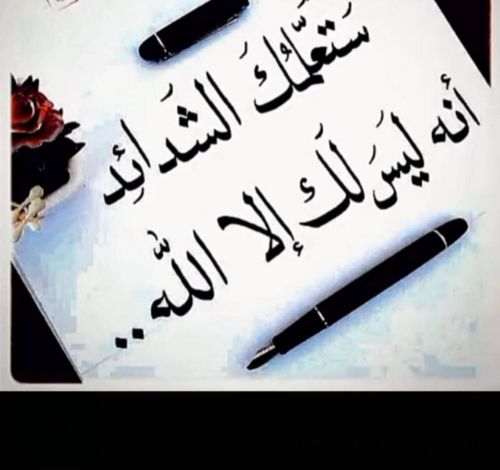 سَتعَلّمُكَ الشدَائِد
أنه ليَسَ لَك إلا الله..